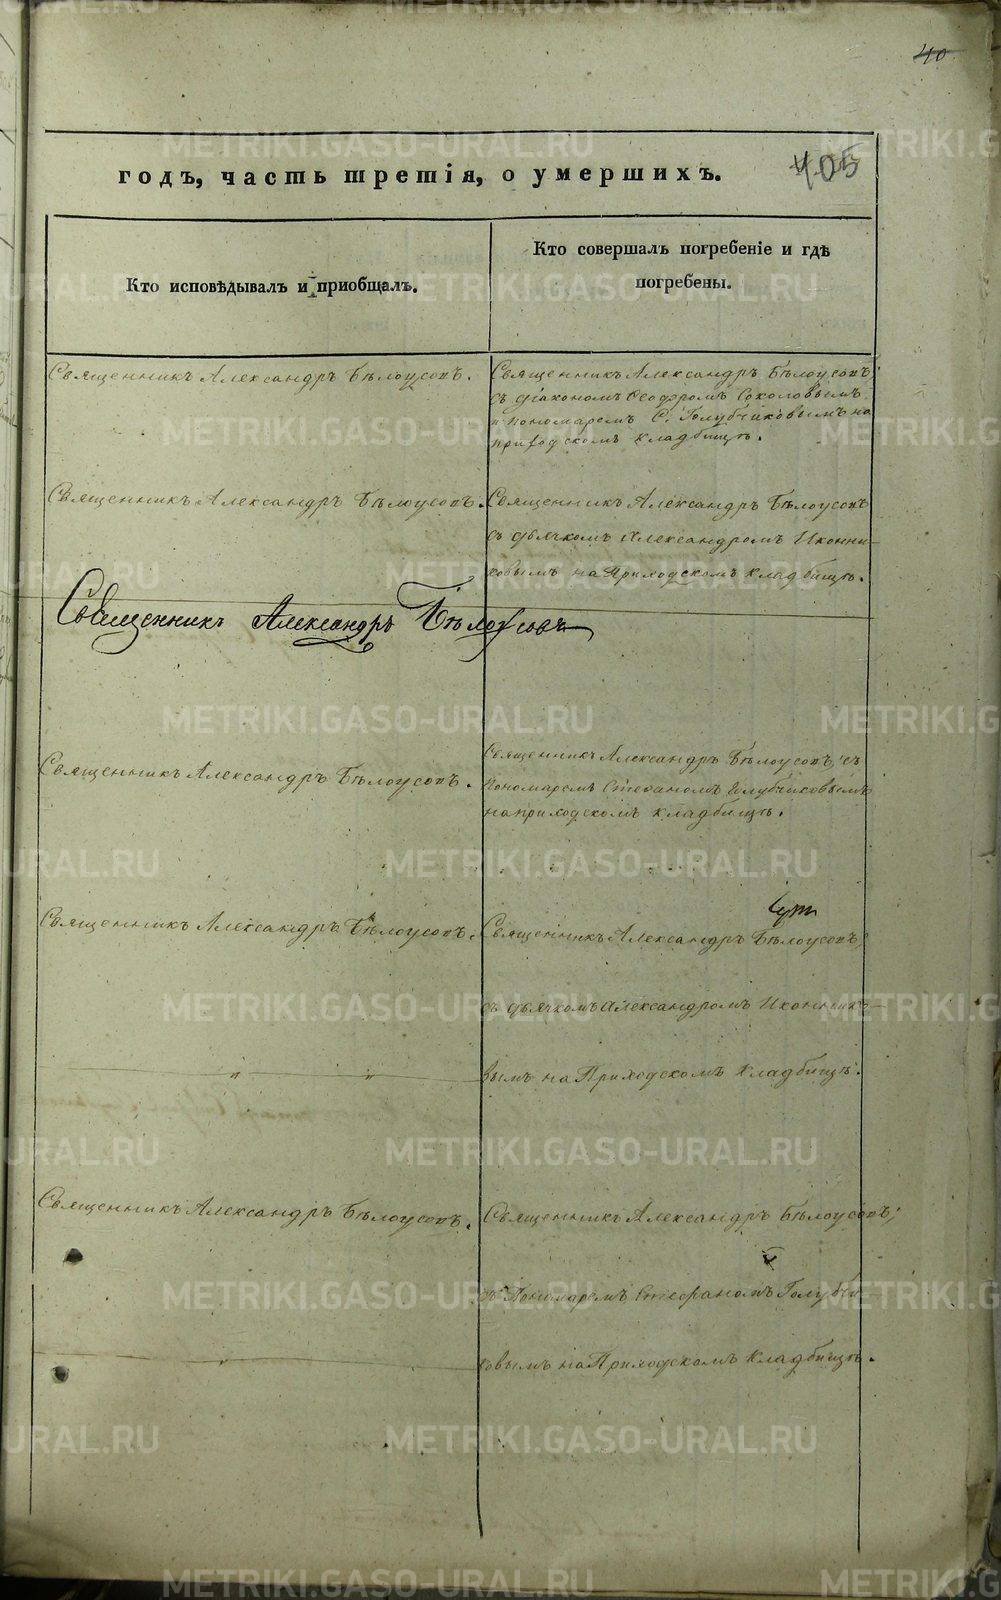 40
405
годъ, часть третія, о умершихъ.
Кто исповѣдывалъ и пріобщалъ.
Кто совершалъ погребеніе и гдѣ
погребены.
Священникъ Александръ Бѣлоусовъ.
Священникъ Александръ Бѣлоусовъ
съ діакономъ Ѳеодоромъ Соколовымъ
и пономаремъ С. Голубчиковымъ на
приходскомъ кладбищѣ.
Священникъ Александръ Бѣлоусовъ.
Священникъ Александръ Бѣлоусовъ
съ дьячкомъ Александромъ Иконни-
ковымъ на Приходскомъ кладбищѣ.
Священникъ Александръ Бѣлоусовъ
Священникъ Александръ Бѣлоусовъ.
Священникъ Александръ Бѣлоусовъ, съ
пономаремъ Стефаномъ Голубчиковымъ
на приходскомъ кладбищѣ.
Священникъ Александръ Бѣлоусовъ.
Священникъ Александръ Бѣлоусовъ,
съ дьячкомъ Александромъ Иконник-
вымъ на Приходскомъ кладбищѣ.
Священникъ Александръ Бѣлоусовъ.
Священникъ Александръ Бѣлоусовъ;
съ Пономаремъ Стефаномъ Голубчи-
ковымъ на Приходскомъ кладбищѣ.
METRIKI.GASO-URAL.RU